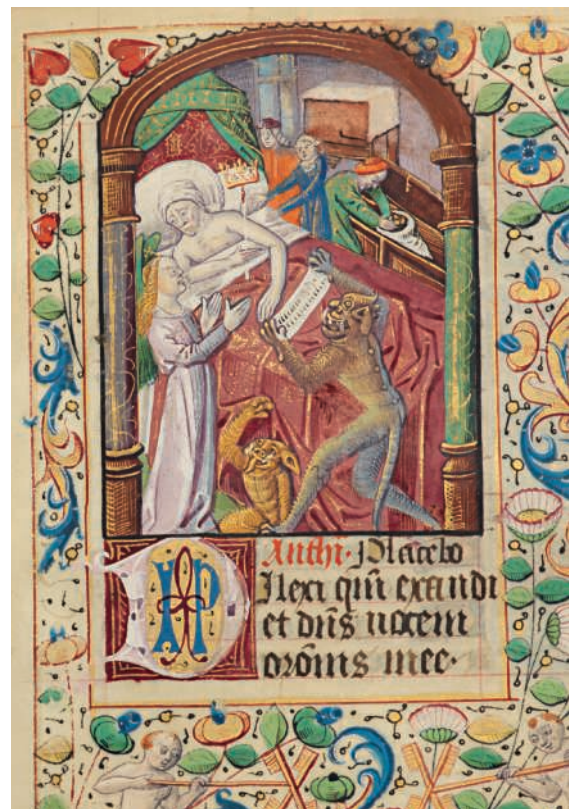 Anthi. Placebo
Dilexi qm̄ exaudi
et dn̄s uocem
orōnis mee.